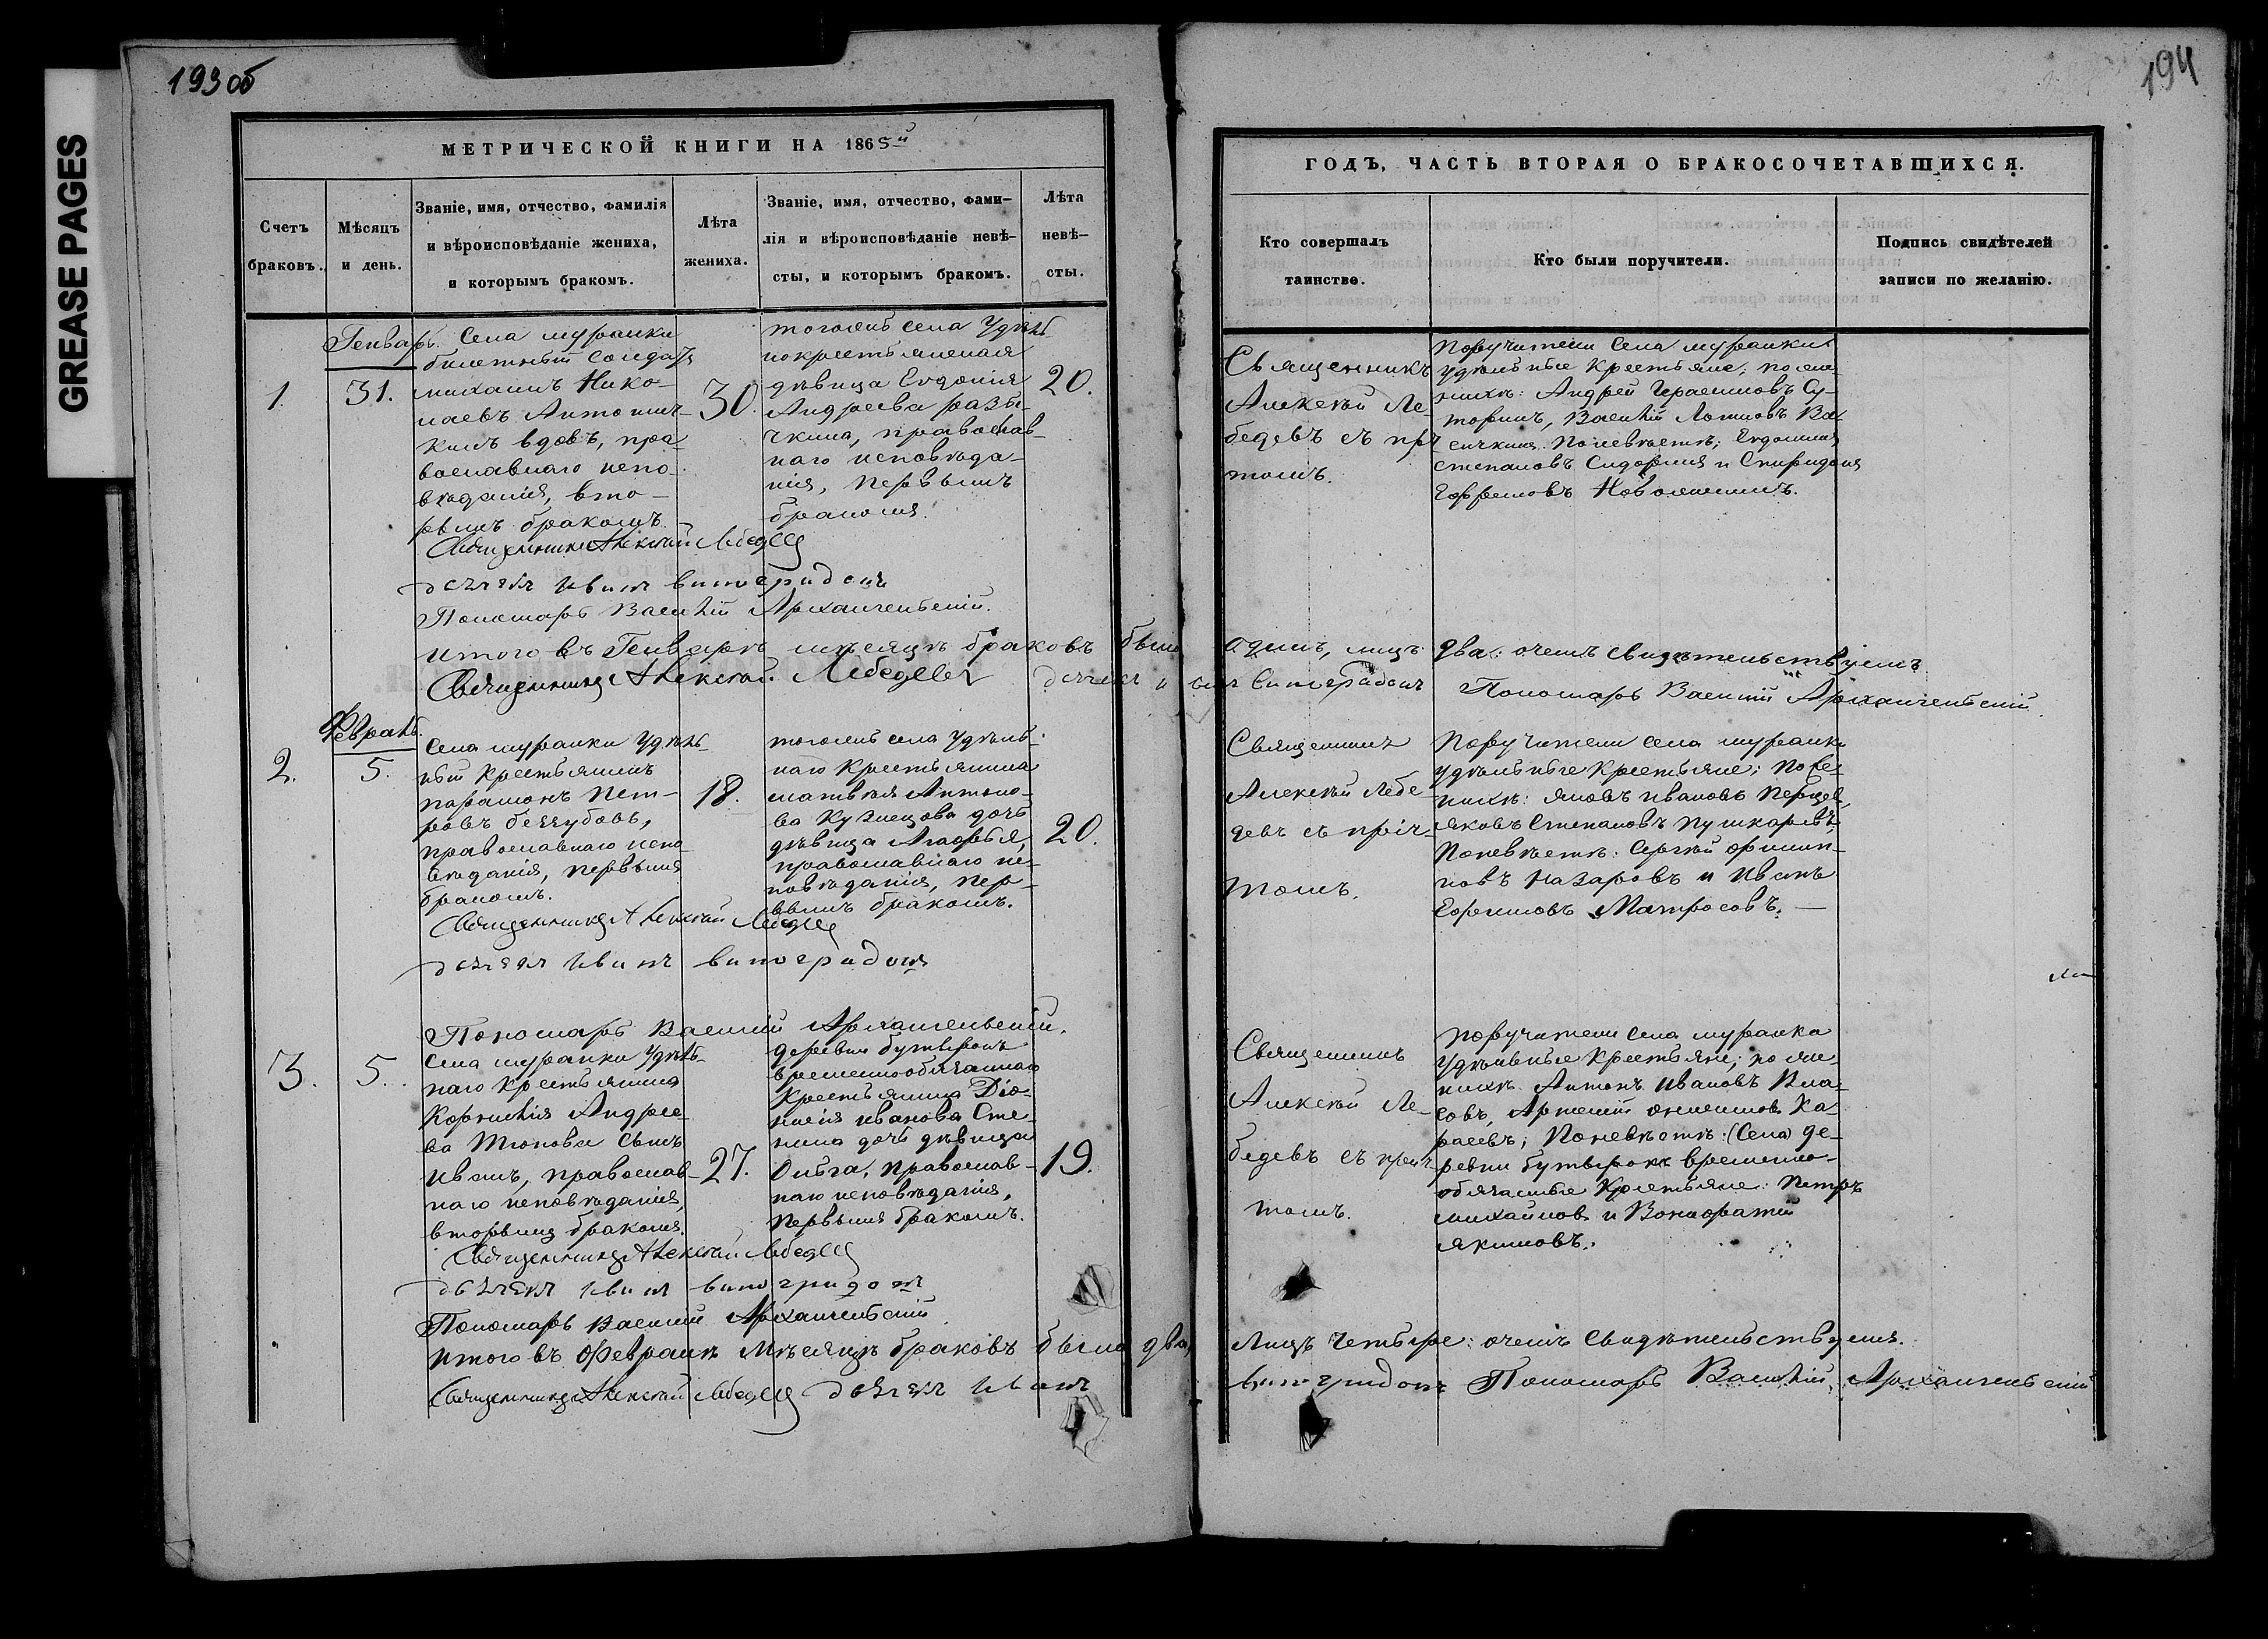 193 об
194
GREASE PAGES
МЕТРИЧЕСКОЙ КНИГИ НА 1865й
Счетъ
браковъ.
Мѣсяцъ
и день.
Званіе, имя, отчество, фамилія
и вѣроисповѣданіе жениха,
и которымъ бракомъ.
Лѣта
жениха.
Званіе, имя, отчество, фами-
лія и вѣроисповѣданіе невѣ-
сты, и которымъ бракомъ.
Лѣта
невѣ-
сты.
ГОДЪ, ЧАСТЬ ВТОРАЯ О БРАКОСОЧЕТАВШИХСЯ.
Кто совершалъ
таинство.
Кто были поручители.
Подпись свидѣтелей
записи по желанію.
Генварь.
1.
31.
Села муранки
билетный солдатъ
михаилъ Нико-
лаевъ Антоши-
кинъ вдовъ, пра
вославнаго испо-
вѣданія, вто-
рымъ бракомъ.
30.
тогожъ села Удѣль
нокрестьянская
дѣвица Евдокія
Андреева
православ-
наго исповѣда-
нія, первымъ
бракомъ.
20.
Священникъ
Алексѣй Ле-
бедевъ съ прич
томъ.
Поручители села муранки
удѣльные крестьяне; по же-
нихѣ: Андрей Герасимовъ Су-
торинъ, Василій Логиновъ Ва-
сичкинъ. По невѣстѣ; Евдокимъ
степановъ Сидоринъ и Спиридонъ
Ефремовъ
Священникъ Алексѣй Лебедевъ
дьячекъ Иванъ виноградовъ
Пономарь Василій Архангельскій.
итого въ Генварѣ мѣсяцѣ браковъ было одинъ, лицъ два: о чемъ свидѣтельствуемъ
Священникъ Алексѣй Лебедевъ дьячекъ Иванъ Виноградовъ Пономарь Василій Архангельскій.
Февраль.
2.
5.
Села муранки Удѣль-
ный крестьянинъ
парамонъ Пет-
ровъ беззубовъ,
православнаго испо
вѣданія, первымъ
бракомъ.
18.
тогожъ села удѣль-
наго крестьянина
матвѣя Антоно-
ва Кузнецова дочь
дѣвица Агафья,
православнаго ис-
повѣданія, пер-
вымъ бракомъ.
20.
Священникъ
Алексѣй Лебе-
девъ съ прич-
томъ.
Поручители села муранки
удѣльные крестьяне; по же-
нихѣ: яковъ ивановъ
яковъ Степановъ пушкаревъ,
По невѣстѣ: Сергѣй филип-
повъ назаровъ и иванъ
Ефимовъ Матросовъ.
Священникъ Алексѣй Лебедевъ
дьячекъ Иванъ виноградовъ
Пономарь Василій Архангельскій.
3.
5.
Села муранки Удѣль-
наго крестьянина
Корнилія Андрее-
ва Тюпова сынъ
Иванъ, православ-
наго исповѣданія,
вторымъ бракомъ.
27.
деревни бутырокъ
временнообязаннаго
крестьянина Діо-
нисія иванова Сте-
нина дочь дѣвица
Ольга, православ-
наго исповѣданія,
первымъ бракомъ.
19.
Священникъ
Алексѣй Ле-
бедевъ съ прич-
томъ.
поручители села муранки
удѣльные крестьяне; по же-
нихѣ. Антонъ ивановъ Вла-
совъ, Артемій Ка-
расевъ; По невѣстѣ: (Села) де-
ревни бутырокъ временно-
обязанные крестьяне: Петръ
михайловъ и Вонифатій
якимовъ.
Священникъ Алексѣй Лебедевъ
дьячекъ Иванъ виноградовъ
Пономарь Василій Архангельскій
итого въ Февралѣ мѣсяцѣ браковъ было два, Лицъ четыре: о чемъ свидѣтельствуемъ.
Священникъ Алексѣй Лебедевъ дьячекъ Иванъ виноградовъ Пономарь Василій Архангельскій